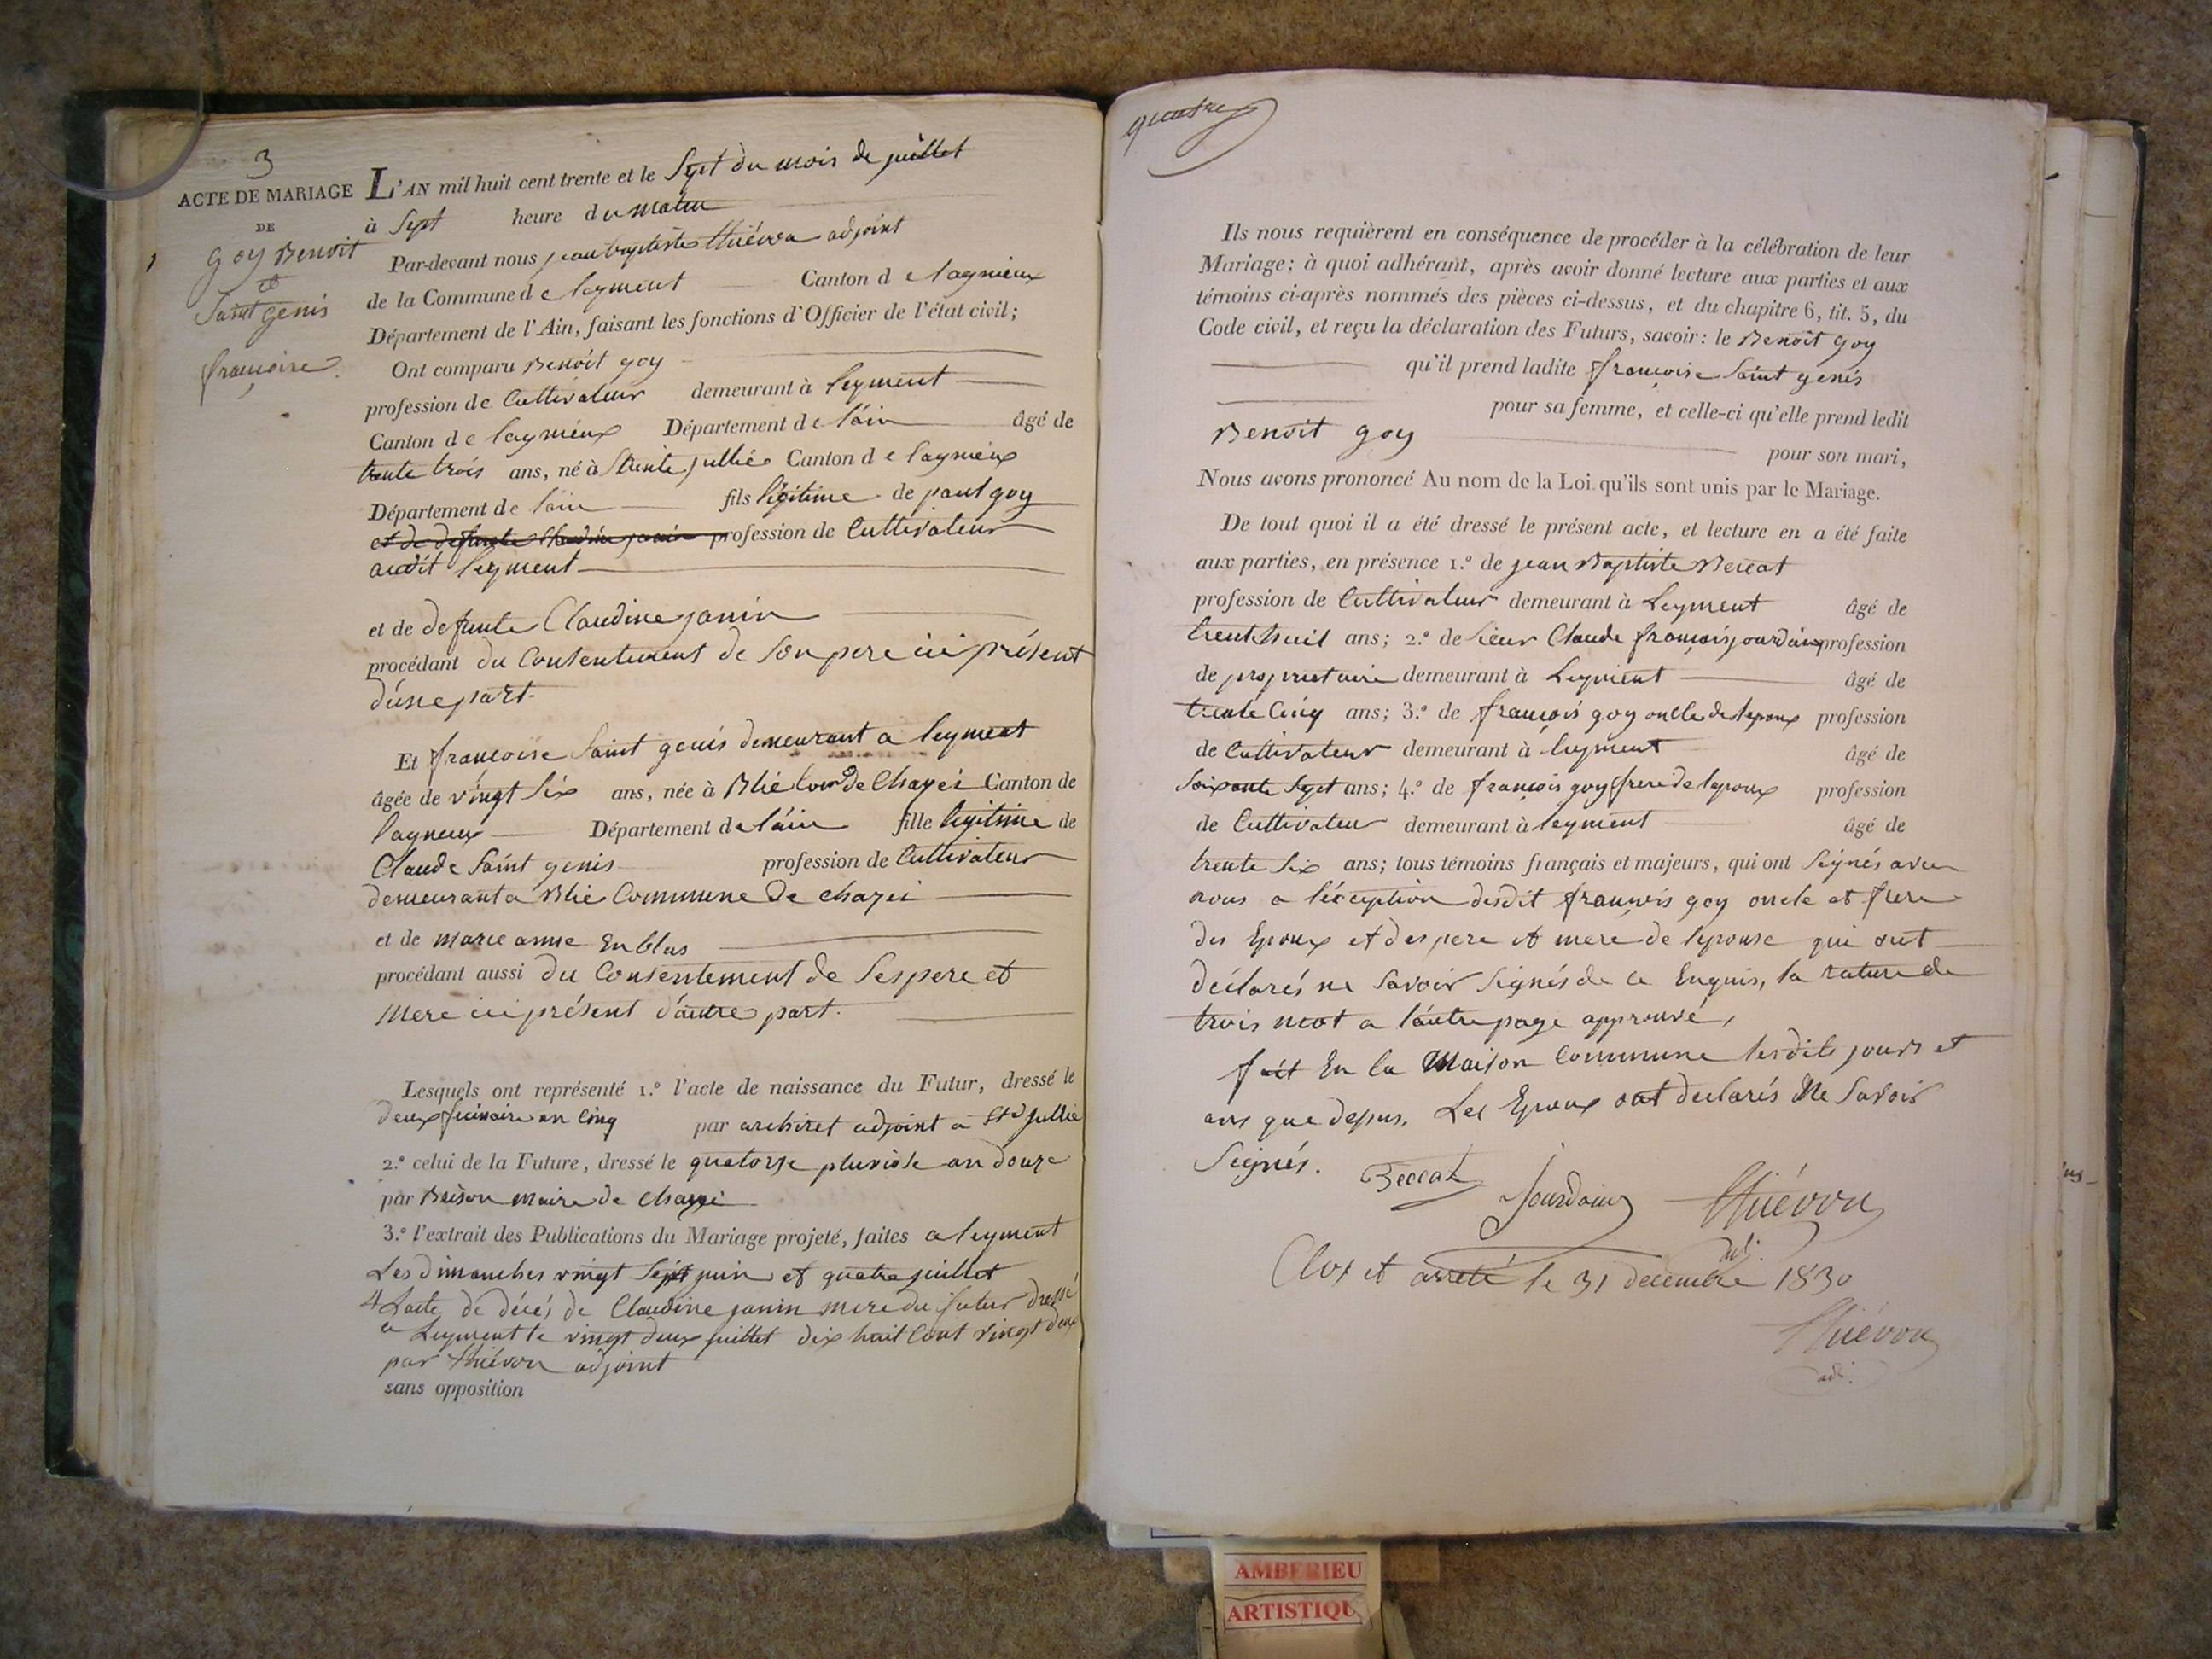 3
ACTE DE MARIAGE
DE
goy Benoit
et
Saint genis
françoise
L'AN mil huit cent trente et le Sept du mois de juillet
à Sept heure du matin
Par-devant nous jean baptiste thiévon adjoint
de la Commune de leyment Canton de lagnieux
Département de l'Ain, faisant les fonctions d'Officier de l'état civil;
Ont comparu Benoit goy
profession de Cultivateur demeurant à leyment
Canton de lagnieux Département de l'ain âgé de
trente trois ans, né à Sainte jullie Canton de lagnieux
Département de l'ain fils légitime de paul goy
et de defunte Claudine janin profession de Cultivateur
audit leyment
et de defunte Claudine janin
procédant du Consentement de son pere ici présent
d'une part.
Et françoise Saint genis demeurant a leyment
âgée de vingt Six ans, née à Blie Com de Chazei Canton de
lagnieux Département de l'ain fille legitime de
Claude Saint genis profession de Cultivateur
demeurant a Blie Commune de chazei
et de marie anne
procédant aussi du Consentement de Ses pere et
Mere ici présent d'autre part.
Lesquels ont représenté 1.º l'acte de naissance du Futur, dressé le
deux frimaire an cinq par adjoint a Ste jullie
2.º celui de la Future, dressé le quatorze pluviose an douze
par Brison maire de Chazei
3.º l'extrait des Publications du Mariage projeté, faites a leyment
Les dimanches vingt Sept juin et quatre juillet
4 L'acte de décés de Claudine janin mere du futur dressé
a Leyment le vingt deux juillet dix huit Cent vingt deux
par thiévon adjoint
sans opposition
quatre
Ils nous requièrent en conséquence de procéder à la célébration de leur
Mariage; à quoi adhérant, après avoir donné lecture aux parties et aux
témoins ci-après nommés des pièces ci-dessus, et du chapitre 6, tit. 5, du
Code civil, et reçu la déclaration des Futurs, savoir: le Benoit goy
qu'il prend ladite françoise Saint genis
pour sa femme, et celle-ci qu'elle prend ledit
Benoit goy
pour son mari,
Nous avons prononcé Au nom de la Loi qu'ils sont unis par le Mariage.
De tout quoi il a été dressé le présent acte, et lecture en a été faite
aux parties, en présence 1.º de jean Baptiste Beccat
profession de Cultivateur demeurant à Leyment âgé de
trent huit ans; 2.º de Sieur Claude françois jourdain profession
de proprietaire demeurant à Leyment âgé de
trente Cinq ans; 3.º de françois goy oncle de lepoux profession
de Cultivateur demeurant à leyment âgé de
Soixante Sept ans; 4.º de françois goy frere de lepoux profession
de Cultivateur demeurant à leyment âgé de
trente Six ans; tous témoins français et majeurs, qui ont Signés avec
nous a l'éxception desdit françois goy oncle et frere
des Epoux et des pere et mere de lepouse qui ont
déclarés ne Savoir Signés de ce Enquis, la rature de
trois mot a l'autre page approuvé,
fait En la Maison Commune lesdits jours et
ans que dessus. Les Epoux ont declarés Ne Savoir
Signés.
Beccat Jourdain Thiévon
adj.
Clos et arreté le 31 decembre 1830
Thiévon
adj.
AMBERIEU
ARTISTIQU